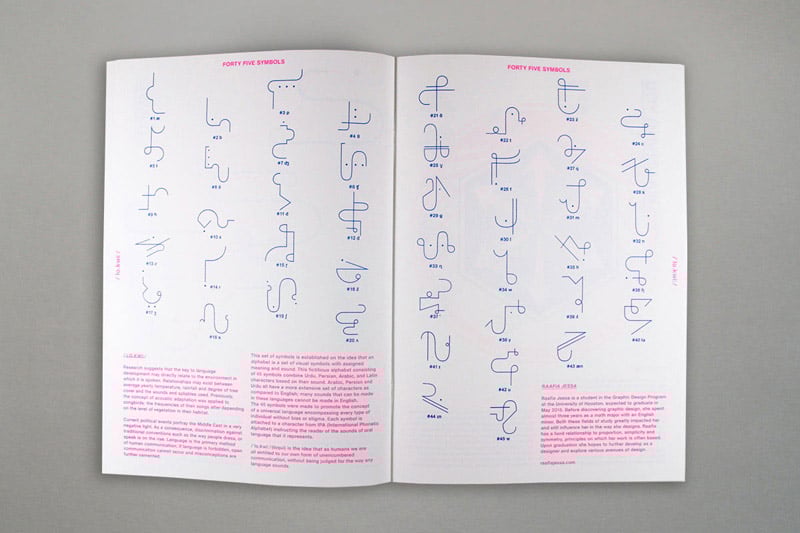 FORTY FIVE SYMBOLS
#1
#2
#3
#4
#5
#6
#7
#8
#9 h
#10
#11 d
#12 d
#13
#14
#15
#16
#17
#18
#19
#20
/ lɑ.kwi /
Research suggests that the key to language
development may directly relate to the environment in
which it is spoken. Relationships may exist between
average yearly temperature, rainfall and degree of tree
cover and the sounds and syllables used. Previously,
the concept of acoustic adaptation was applied to
songbirds; the frequencies of their songs alter depending
on the level of vegetation in their habitat.
Current political events portray the Middle East in a very
negative light. As a consequence, discrimination against
traditional conventions such as the way people dress, or
speak is on the rise. Language is the primary method
of human communication; if language is forbidden, open
communication cannot occur and misconceptions are
further cemented.
This set of symbols is established on the idea that an
alphabet is a set of visual symbols with assigned
meaning and sound. This fictitious alphabet consisting
of 45 symbols combine Urdu, Persian, Arabic, and Latin
characters based on their sound. Arabic, Persian and
Urdu all have a more extensive set of characters as
compared to English; many sounds that can be made
in these languages cannot be made in English.
The 45 symbols were made to promote the concept
of a universal language encompassing every type of
individual without bias or stigma. Each symbol is
attached to a character from IPA (International Phonetic
Alphabet) instructing the reader of the sounds of oral
language that it represents.
is the idea that as humans we are
all entitled to our own form of unencumbered
communication, without being judged for the way any
language sounds.
FORTY FIVE SYMBOLS
#21
#22 t
#23
#24
#25
#26 f
#27 q
#28
#29 g
#30 l
#31 m
#32 n
#33
#34
#35 h
#36
#37
#38
#39
#40
#41
#42
#43
#44
#45
RAAFIA JESSA
Raafia Jessa is a student in the Graphic Design Program
at the University of Houston, expected to graduate in
May 2019. Before discovering graphic design, she spent
almost three years as a math major with an English
minor. Both these fields of study greatly impacted her
and still influence her in the way she designs. Raafia
has a hard relationship to proportion, simplicity and
symmetry, principles on which her work is often based.
Upon graduation she hopes to further develop as a
designer and explore various avenues of design.
raafiajessa.com